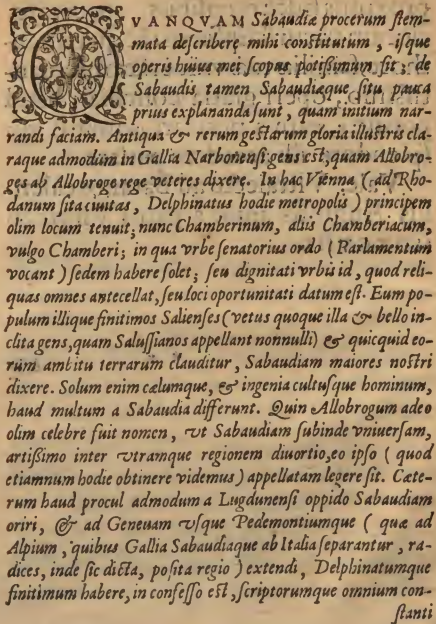 QVANQVAM Sabaudiæ procerum stem-
mata describere mihi constitutum, isque
operis huius mei scopus potißimum sit; de
Sabaudis tamen, Sabaudiæque situ, pauca
prius explananda sunt, quam initium nar-
randi faciam. Antiqua & rerum gestarum gloria illustris cla-
raque admodum in Gallia Narbonensi gens est, quam Allobro-
ges ab Allobroge rege veteres dixere. In hac Vienna (ad Rho-
danum sita ciuitas, Delphinatus hodie metropolis) principem
olim locum tenuit; nunc Chamberinum, aliis Chamberiacum,
vulgo Chamberi; in qua vrbe senatorius ordo (Parlamentum
vocant) sedem habere solet; seu dignitati vrbis id, quod reli-
quas omnes antecellat, seu loci oportunitati datum est. Eum po-
pulum illique finitimos Salienses (vetus quoque illa & bello in-
clita gens, quam Salussianos appellant nonnulli) & quicquid eo-
rum ambitu terrarum clauditur, Sabaudiam maiores nostri
dixere. Solum enim cælumque, & ingenia cultusque hominum,
haud multum a Sabaudia differunt. Quin Allobrogum adeo
olim celebre fuit nomen, vt Sabaudiam subinde vniuersam,
artißimo inter vtramque regionem diuortio, eo ipso (quod
etiamnum hodie obtinere videmus) appellatam legere sit. Cæte-
rum haud procul admodum a Lugdunensi oppido Sabaudiam
oriri, & ad Geneuam vsque Pedemontiumque (quæ ad
Alpium, quibus Gallia Sabaudiaque ab Italia separantur, ra-
dices, inde sic dicta, posita regio) extendi, Delphinatumque
finitimum habere, in confesso est, scriptorumque omnium con-
stanti